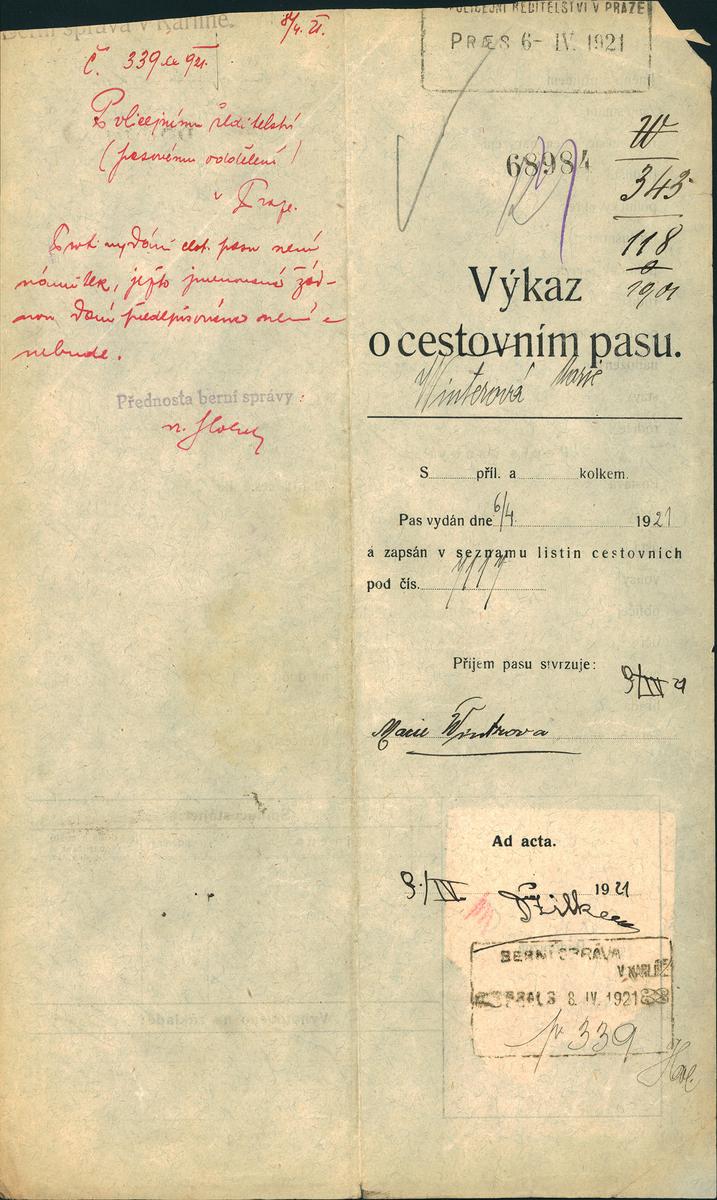 Berní správa v Karlíně.
8/4. 21.
Č. 339 ex 921.
Policejnímu ředitelství
(pasovému oddělení)
v Praze.
Proti vydání cest. pasu není
námitek, ježto jmenované žád-
nou daní předepisováno není a
nebude.
Přednosta berní správy:
POLICEJNÍ ŘEDITELSTVÍ V PRAZE
PRÆS 6- IV. 1921
68984
W
343
118
1901
Výkaz
o cestovním pasu.
Winterová Marie
S příl. a kolkem.
Pas vydán dne 6/4 1921
a zapsán v seznamu listin cestovních
pod čís.
Příjem pasu stvrzuje:
9/IV 21
Marie Wintrova
Ad acta.
9./IV. 1921
BERNÍ SPRÁVA
V KARLÍNĚ
8. IV. 1921
339